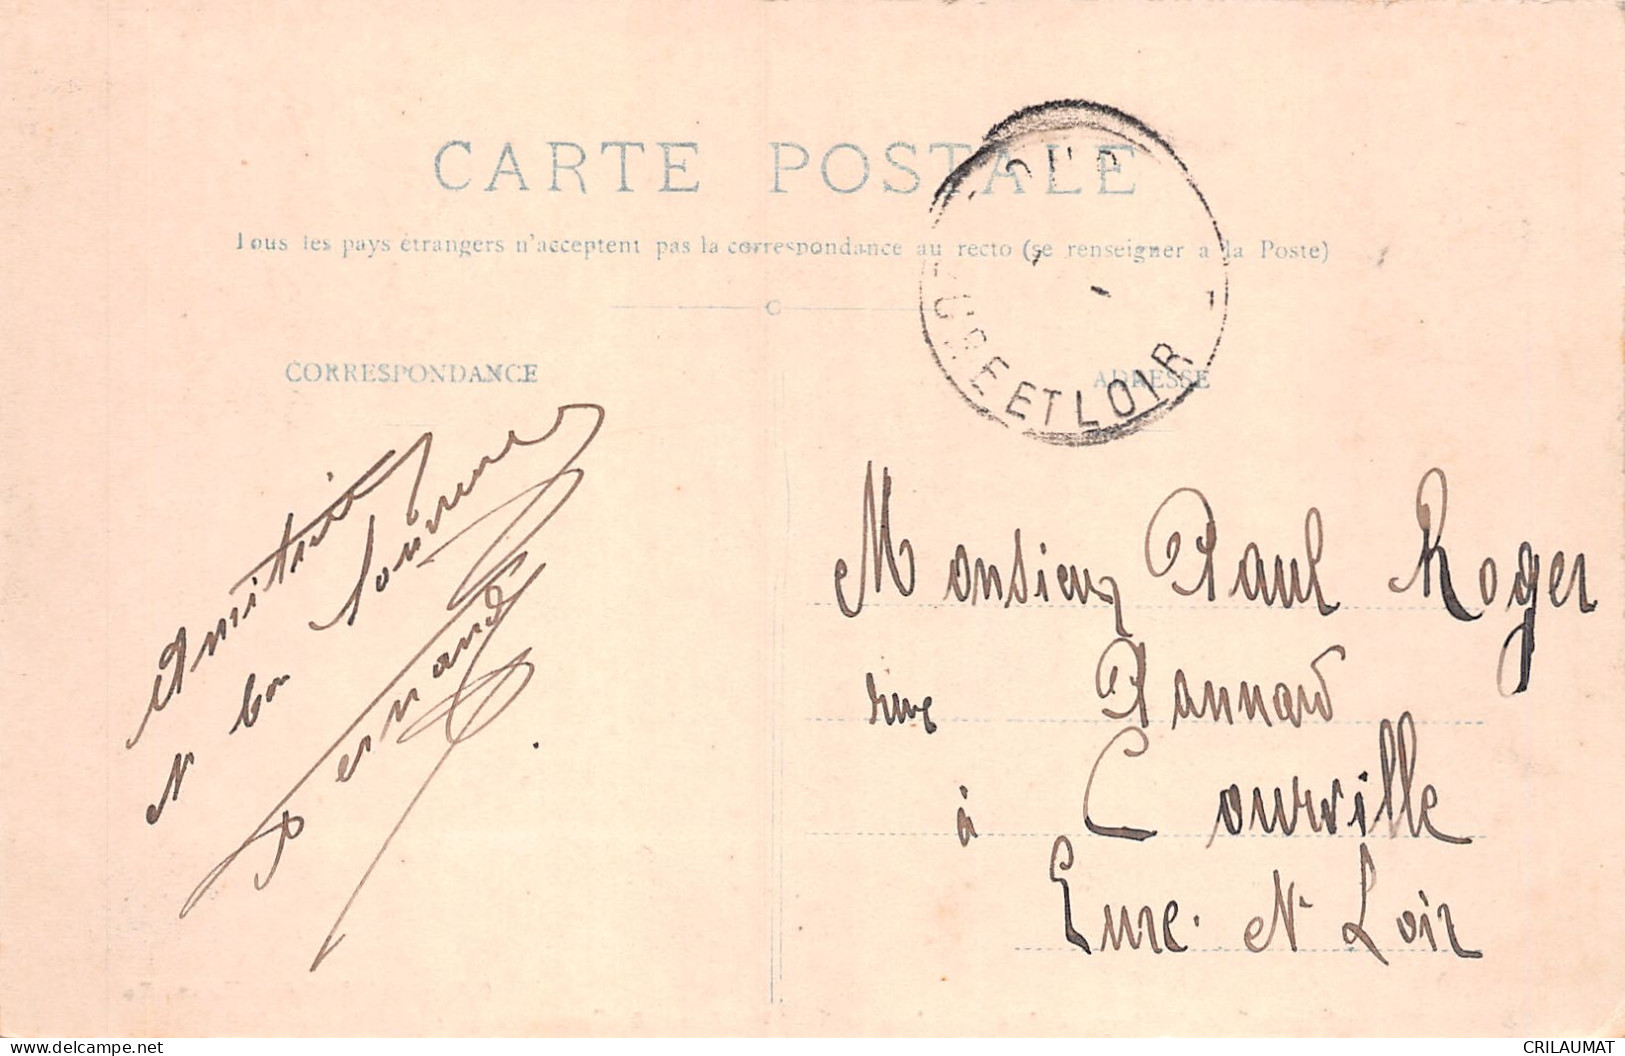 CARTE POSTALE
Tous les pays étrangers n'acceptent pas la correspondance au recto (se renseigner a la Poste)
CORRESPONDANCE
ADRESSE
URE ET LOIR
Amitiés
et bon souvenir
Fernand
Monsieur Paul Roger
rue Pannard
à Courville
Eure et Loir
CRILAUMAT